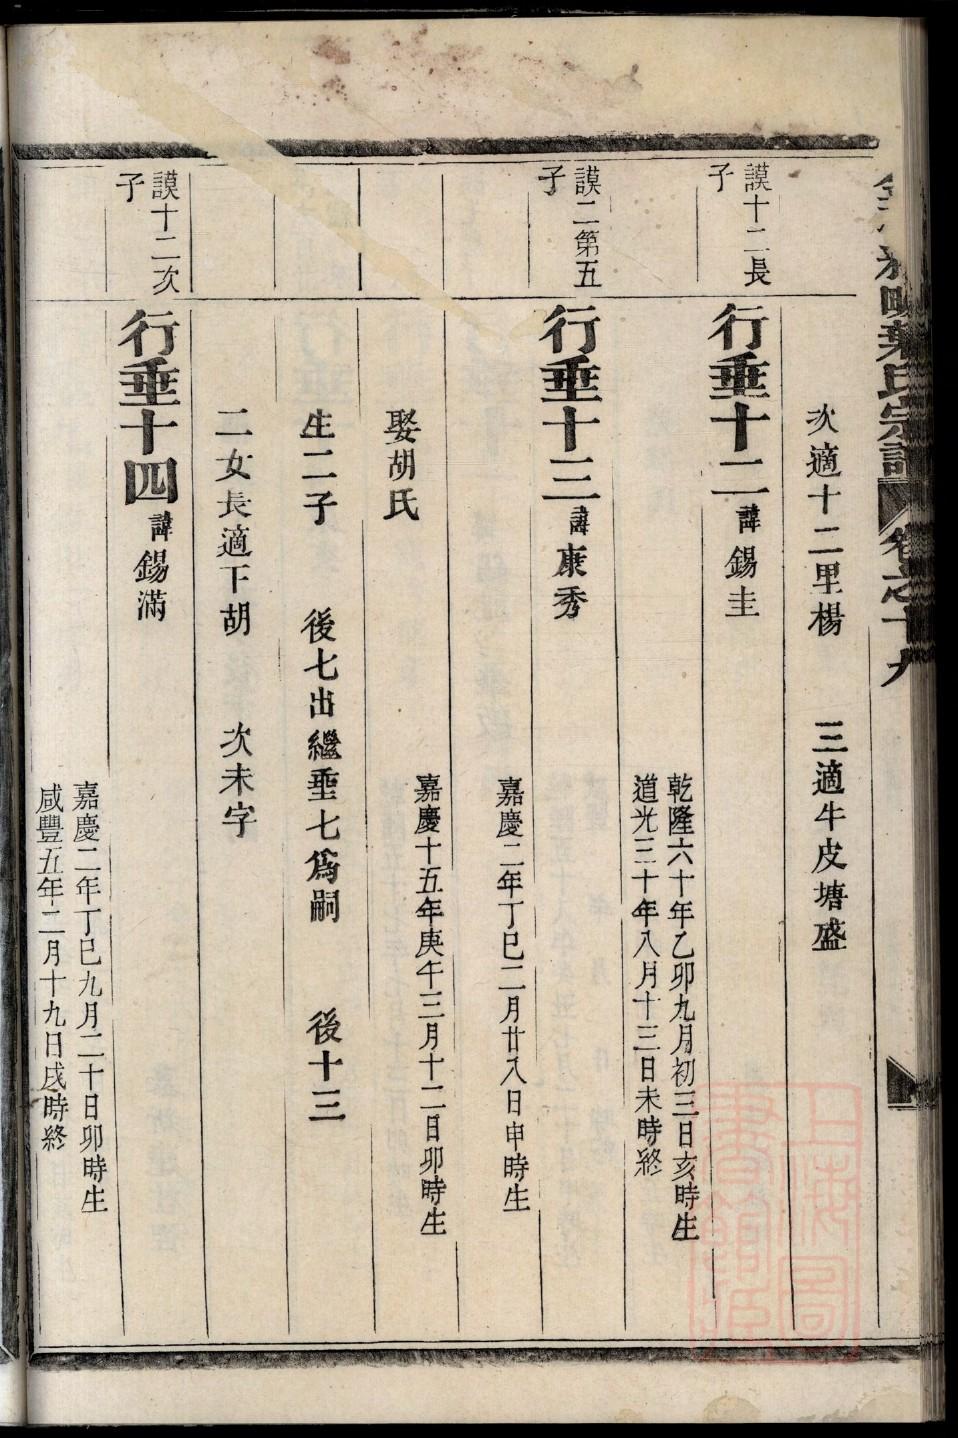 葉氏宗譜 卷之十九
次適十二里楊 三適牛皮塘盛
謨十二長
子
行埀十二 諱錫圭
乾隆六十年乙卯九月初三日亥時生
道光三十年八月十三日未時終
謨二第五
子
行埀十三 諱康秀
嘉慶二年丁巳二月廿八日申時生
娶胡氏
嘉慶十五年庚午三月十二日卯時生
生二子 後七出繼埀七爲嗣 後十三
二女長適下胡 次未字
謨十二次
子
行埀十四 諱錫滿
嘉慶二年丁巳九月二十日卯時生
咸豐五年二月十九日戌時終
上海圖
書館藏